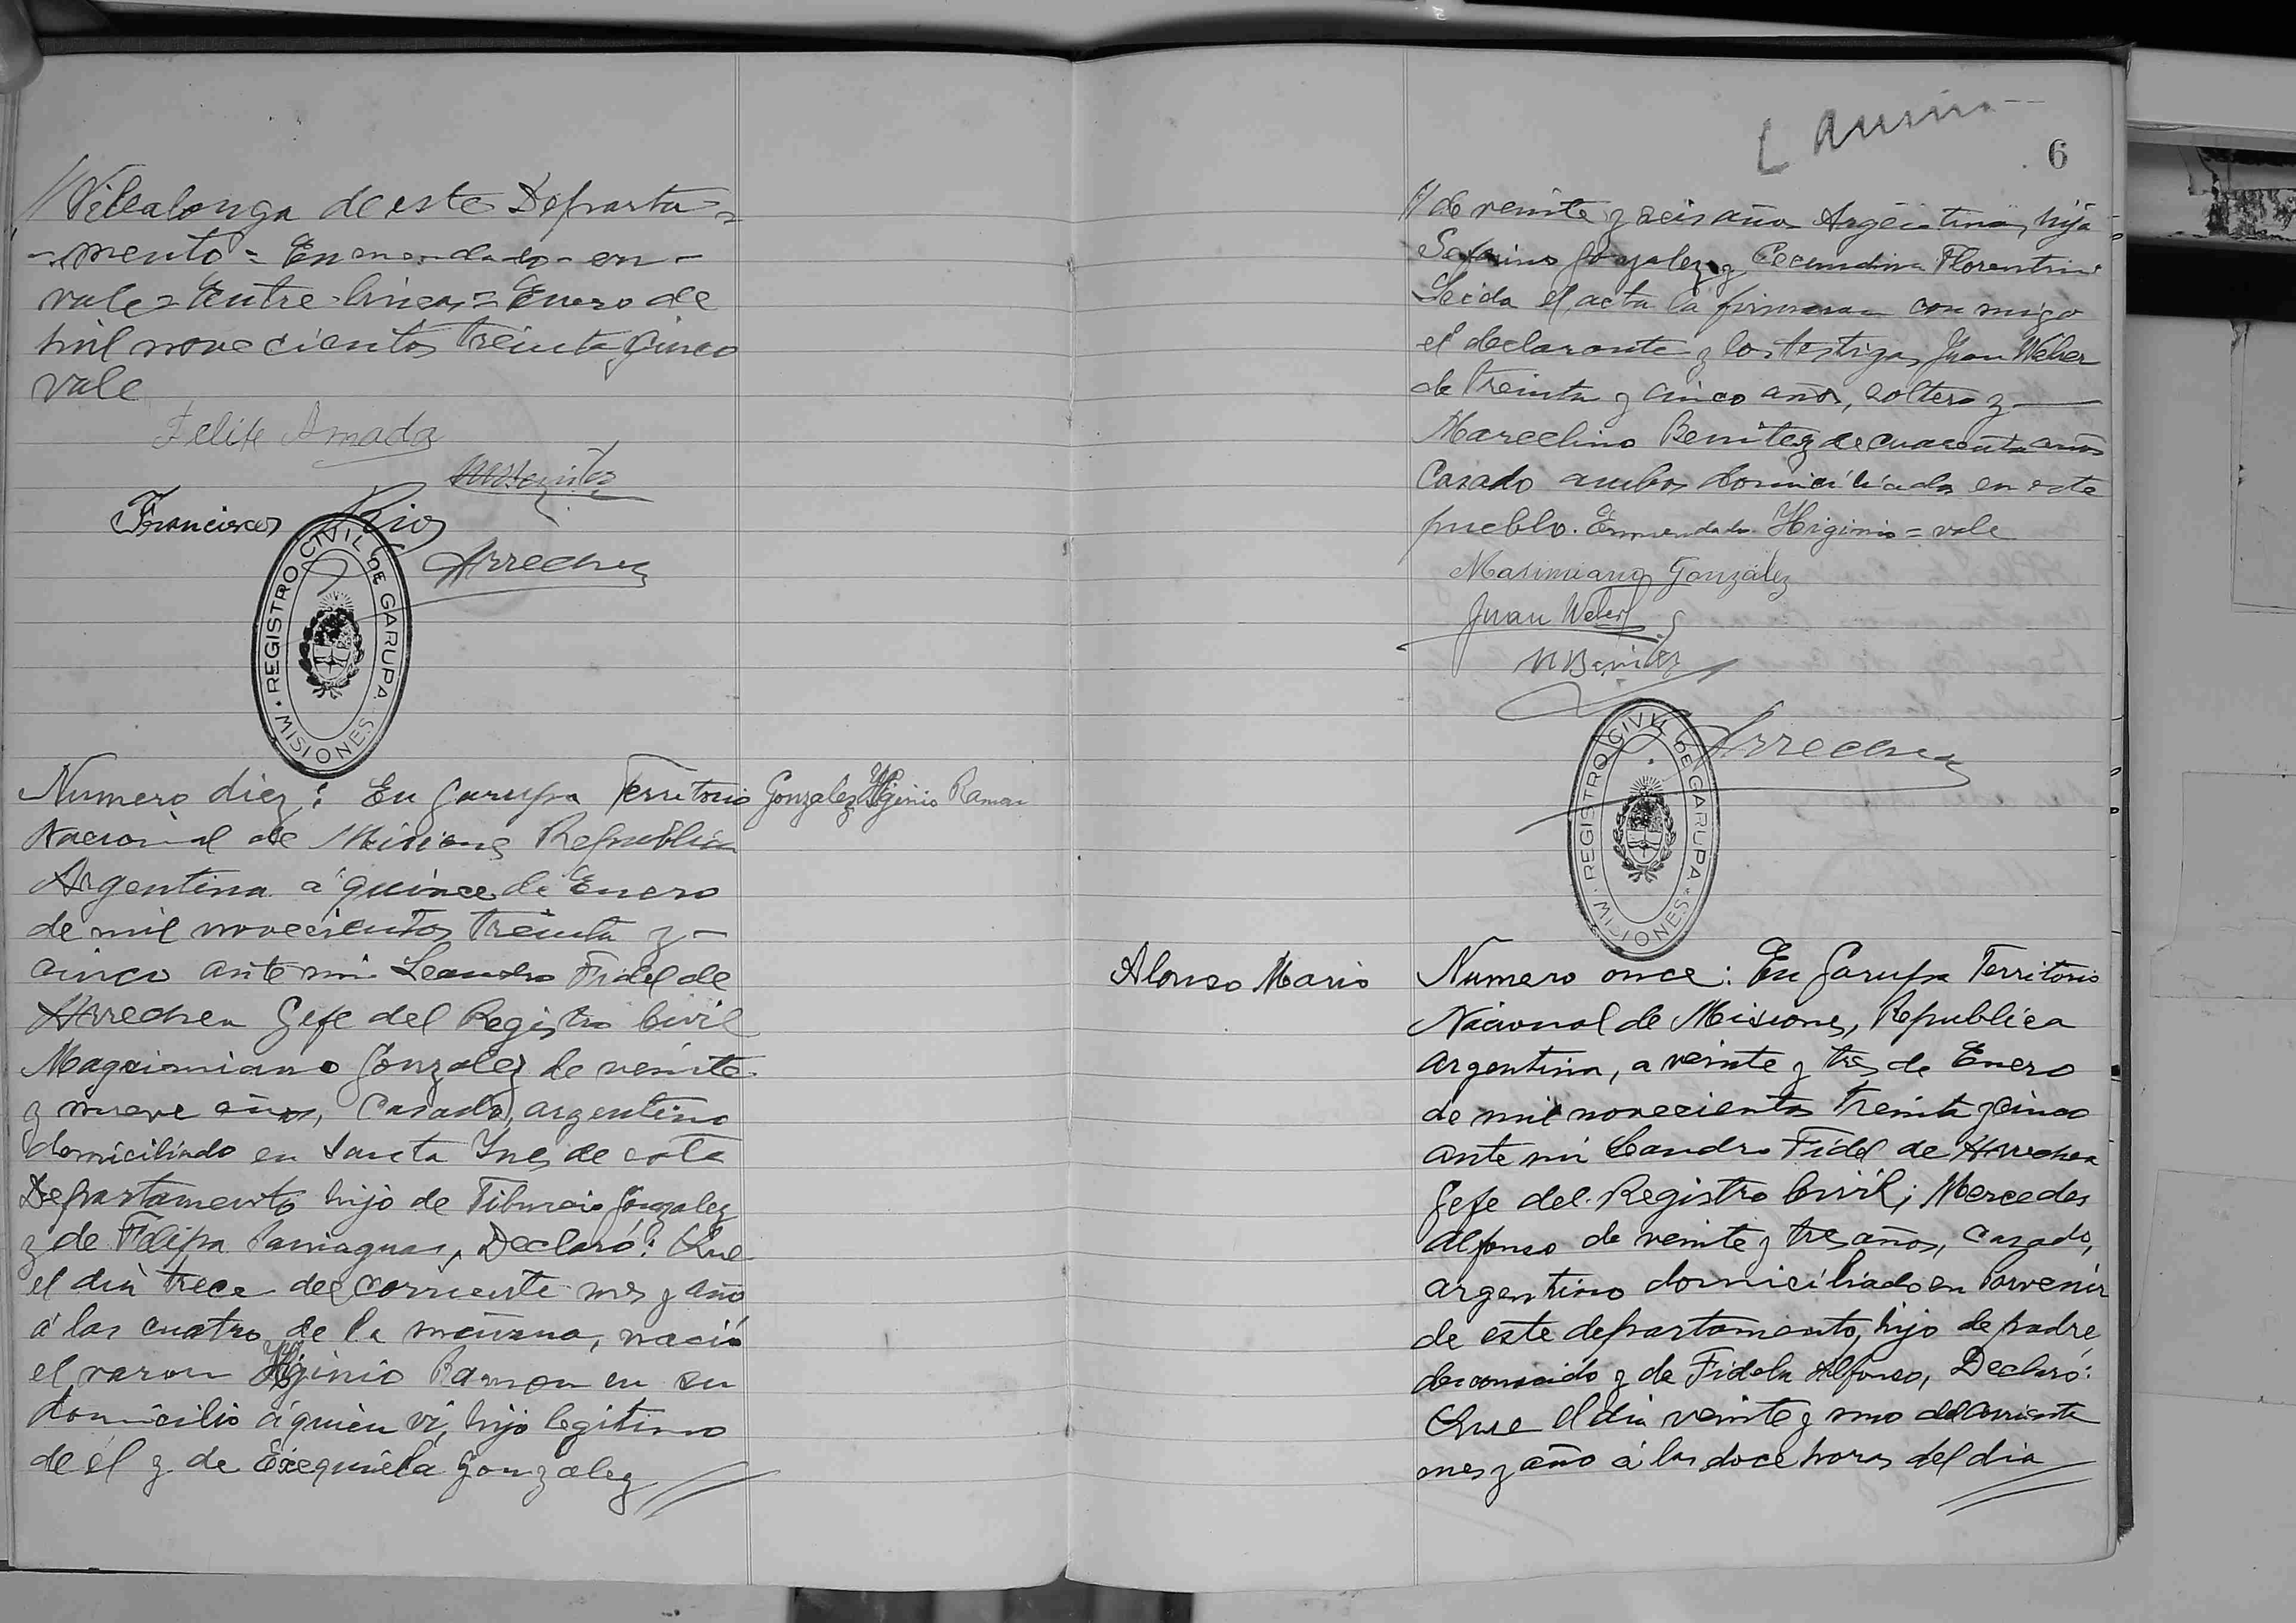 // Villalonga de este Departa=
-mento = Enmendado - en -
vale = Entre-lineas = Enero de
mil novecientos treinta y cinco
vale
Felipe Amada
MBenitez
Francisco Rios
Arrechea
REGISTRO CIVIL DE GARUPA
MISIONES
Numero diez: En Garupa Territorio
Gonzalez Higinio Ramon
Nacional de Misiones Republica
Argentina á quince de Enero
de mil novecientos treinta y -
cinco ante mi Leandro Fidel de
Arrechea Gefe del Registro Civil
Maqximiano Gonzalez de veinte
y nueve años, Casado, argentino
domiciliado en Santa Ines de este
Departamento hijo de Tiburcio Gonzalez
y de Felipa Paniagua, Declaró: Que
el dia trece del corriente mes y año
á las cuatro de la mañana, nació
el varon Higinio Ramon en su
domicilio á quien vi, hijo legitimo
de él y de Exequiela Gonzalez //
6
// de veinte y seis años Argentina, hija
Gonzalez y Secundina Florentin
Leida el acta la firmaran con migo
el declarante y los testigos Juan Weber
de treinta y cinco años, soltero y
Marcelino Benitez de cuarenta años
Casado ambos domiciliados en este
pueblo. Enmendado Higinio = vale
Maximiano González
Juan Weber
MBenitez
Arrechea
REGISTRO CIVIL DE GARUPA
MISIONES
Alonso Mario
Numero once: En Garupa Territorio
Nacional de Misiones, Republica
argentina, a veinte y tres de Enero
de mil novecientos treinta y cinco
ante mi Leandro Fidel de Arrechea
Gefe del Registro Civil; Mercedes
Alfonso de veinte y tres años, casado,
argentino domiciliado en Porvenir
de este departamento, hijo de padre
desconocido y de Fidela Alfonso, Declaró:
Que el dia veinte y uno del corriente
mes y año á las doce horas del dia //